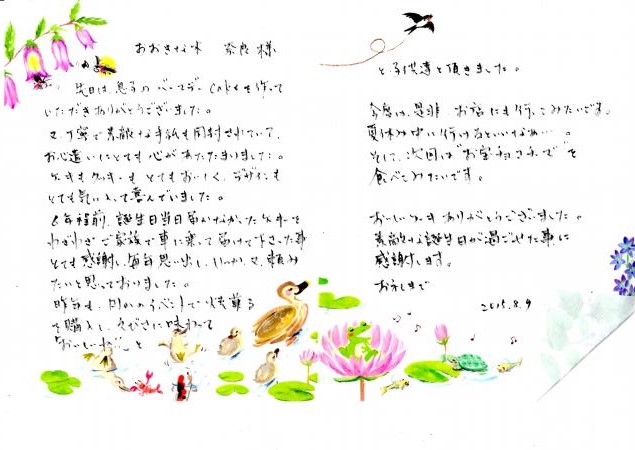 おおきな木 奈良様
先日は息子のバースデーCakeを作って
いただきありがとうございました。
又、丁寧で素敵な手紙も同封されていて、
お心遣いにとても心があたたまりました。
ケーキもクッキーもとてもおいしく、デザインも
とても気に入って喜んでいました。
6年程前、誕生日当日届かなかったケーキを
わざわざご家族で車に乗って届けて下さった事
とても感謝し、毎年思い出し、いつか又、頼み
たいと思っておりました。
昨年も、別のイベントで
を購入し、 味わって
"おいしいね"と
と子供達と頂きました。
今度は、是非お店にも行ってみたいです。
夏休み中に行けるといいなぁ…。
そして、次回は"お宝チョコチーズ"を
食べてみたいです。
おいしいケーキありがとうございました。
素敵な誕生日が過ごせた事に
感謝します。
2015.8.9